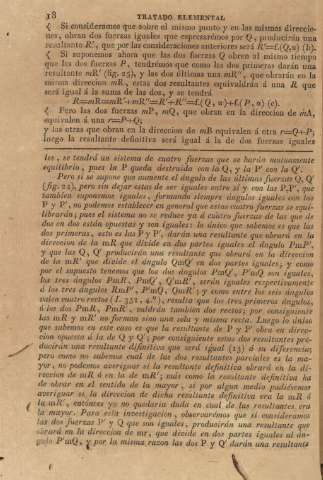 18 TRATADO ELEMENTAL
Si consideramos que sobre el mismo punto y en las mismas direccio-
nes, obran dos fuerzas iguales que espresarémos por Q, producirán una
resultante R', que por las consideraciones anteriores será R'=f.(Q,n) (b).
Si suponemos ahora que las dos fuerzas Q obren al mismo tiempo
que las dos fuerzas P, tendrémos que como las dos primeras darán una
resultante mR' (fig. 25), y las dos últimas una mR'', que obrarán en la
misma direccion mR, estas dos resultantes equivaldrán á una R que
será igual á la suma de las dos, y se tendrá
R=mR=mR'+mR''=R'+R''=f.(Q,n)+f.(P,n) (c).
Pero las dos fuerzas mP, mQ, que obran en la direccion de mA,
equivalen á una r=P+Q;
y las otras que obran en la direccion de mB equivalen á otra r=Q+P;
luego la resultante definitiva será igual á la de dos fuerzas iguales
les, se tendrá un sistema de cuatro fuerzas que se harán mutuamente
equilibrio, pues la P queda destruida con la Q, y la P' con la Q'.
Pero si se supone que aumente el ángulo de las últimas fuerzas Q, Q'
(fig. 22), pero sin dejar estas de ser iguales entre sí y con las P,P', que
tambien suponemos iguales, formando siempre ángulos iguales con las
P y P', no podemos establecer en general que estas cuatro fuerzas se equi-
librarán; pues el sistema no se reduce ya á cuatro fuerzas de las que de
dos en dos están opuestas y son iguales: lo único que sabemos es que las
dos primeras, esto es las P y P', darán una resultante que obrará en la
direccion de la mR que divide en dos partes iguales el ángulo PmP',
y que las Q, Q' producirán una resultante que obrará en la direccion
de la mR' que divide el ángulo QmQ' en dos partes iguales; y como
por el supuesto tenemos que los dos ángulos PmQ, P'mQ' son iguales,
los tres ángulos PmR, PmQ, QmR', serán iguales respectivamente
á los tres ángulos RmP', P'mQ', Q'mR'; y como entre los seis ángulos
valen cuatro rectos (I. 351, 4.°), resulta que los tres primeros ángulos,
á los dos PmR, PmR', valdrán tambien dos rectos; por consiguiente
las mR y mR' no forman sino una sola y misma recta. Luego lo único
que sabemos en este caso es que la resultante de P y P' obra en direc-
cion opuesta á la de Q y Q'; por consiguiente estas dos resultantes pro-
ducirán una resultante definitiva que será igual (13) á su diferencia;
pero como no sabemos cual de las dos resultantes parciales es la ma-
yor, no podemos averiguar si la resultante definitiva obrará en la di-
reccion de mR ó en la de mR'; mas como la resultante definitiva ha
de obrar en el sentido de la mayor, si por algun medio pudiésemos
averiguar si la direccion de dicha resultante definitiva era la mR ó
la mR', entónces ya no quedaria duda en cual de las resultantes era
la mayor. Para esta investigacion, observarémos que si consideramos
las dos fuerzas P' y Q que son iguales, producirán una resultante que
obrará en la direccion de mr, que divide en dos partes iguales al án-
gulo P'mQ, y por la misma razon las dos P y Q' darán una resultante